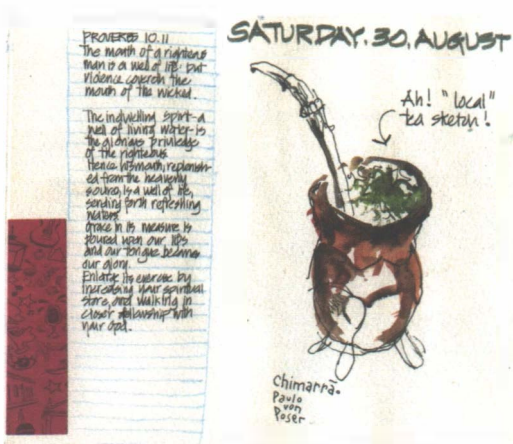 PROVERBS 10.11
The mouth of a righteous
man is a well of life: but
violence covereth the
mouth of the wicked.
The indwelling Spirit-a
well of living water-is
the glorious priviledge
of the righteous
Hence his mouth, replenish-
ed from the heavenly
source, is a well of life,
sending forth refreshing
waters.
Grace in its measure is
poured upon our lips
and our tongue becomes
our glory.
Enlarge its exercise by
increasing your spiritual
store, and walking in
closer fellowship with
your God.
SATURDAY. 30. AUGUST
Ah! "local"
tea sketch!
Chimarrã.
Paulo
von
Poser